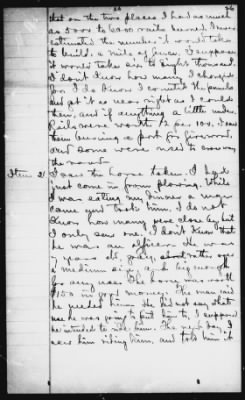 26
that on the two places I had as much
as 5000 to 6000 rails burned. I never
estimated the number it would take
to build a mile of fence. I suppose
it would take six to eight thousand.
I don't know how many I charged
for. I do know I counted the panels
and got it as near right as I could
then, and if anything a little under.
Rails were worth $ per 100. I saw
them burning a part for firewood,
and some were used to
the road.
Item 2/ I saw the horse taken. I had
just come in from plowing. While
I was eating my dinner a man
came and took him. I do not
know how many were close by but
I only saw one. I don't know that
he was an officer. He was
7 years old, gray, rather, of
a medium size and big enough
for any use. The horse was worth
$150 in good money. The man said
he needed him. He did not say what
use he was going to put him to, I suppose
he intended to ride him. The next day I
saw him riding him, and told him it